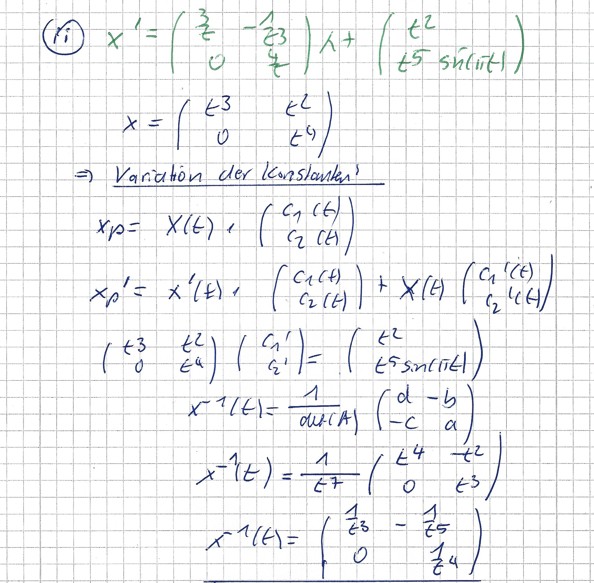 (ii) x' = ( 3/t  -1/t3 ; 0  4/t ) x + ( t2 ; t5 sin(πt) )
x = ( t3  t2 ; 0  t4 )
⇒ Variation der Konstanten:
xp = X(t) · ( c1(t) ; c2(t) )
xp' = x'(t) · ( c1(t) ; c2(t) ) + X(t) ( c1'(t) ; c2'(t) )
( t3  t2 ; 0  t4 ) ( c1' ; c2' ) = ( t2 ; t5 sin(πt) )
x-1(t) = 1/det(A) ( d  -b ; -c  a )
x-1(t) = 1/t7 ( t4  -t2 ; 0  t3 )
x-1(t) = ( 1/t3  - 1/t5 ; 0  1/t4 )